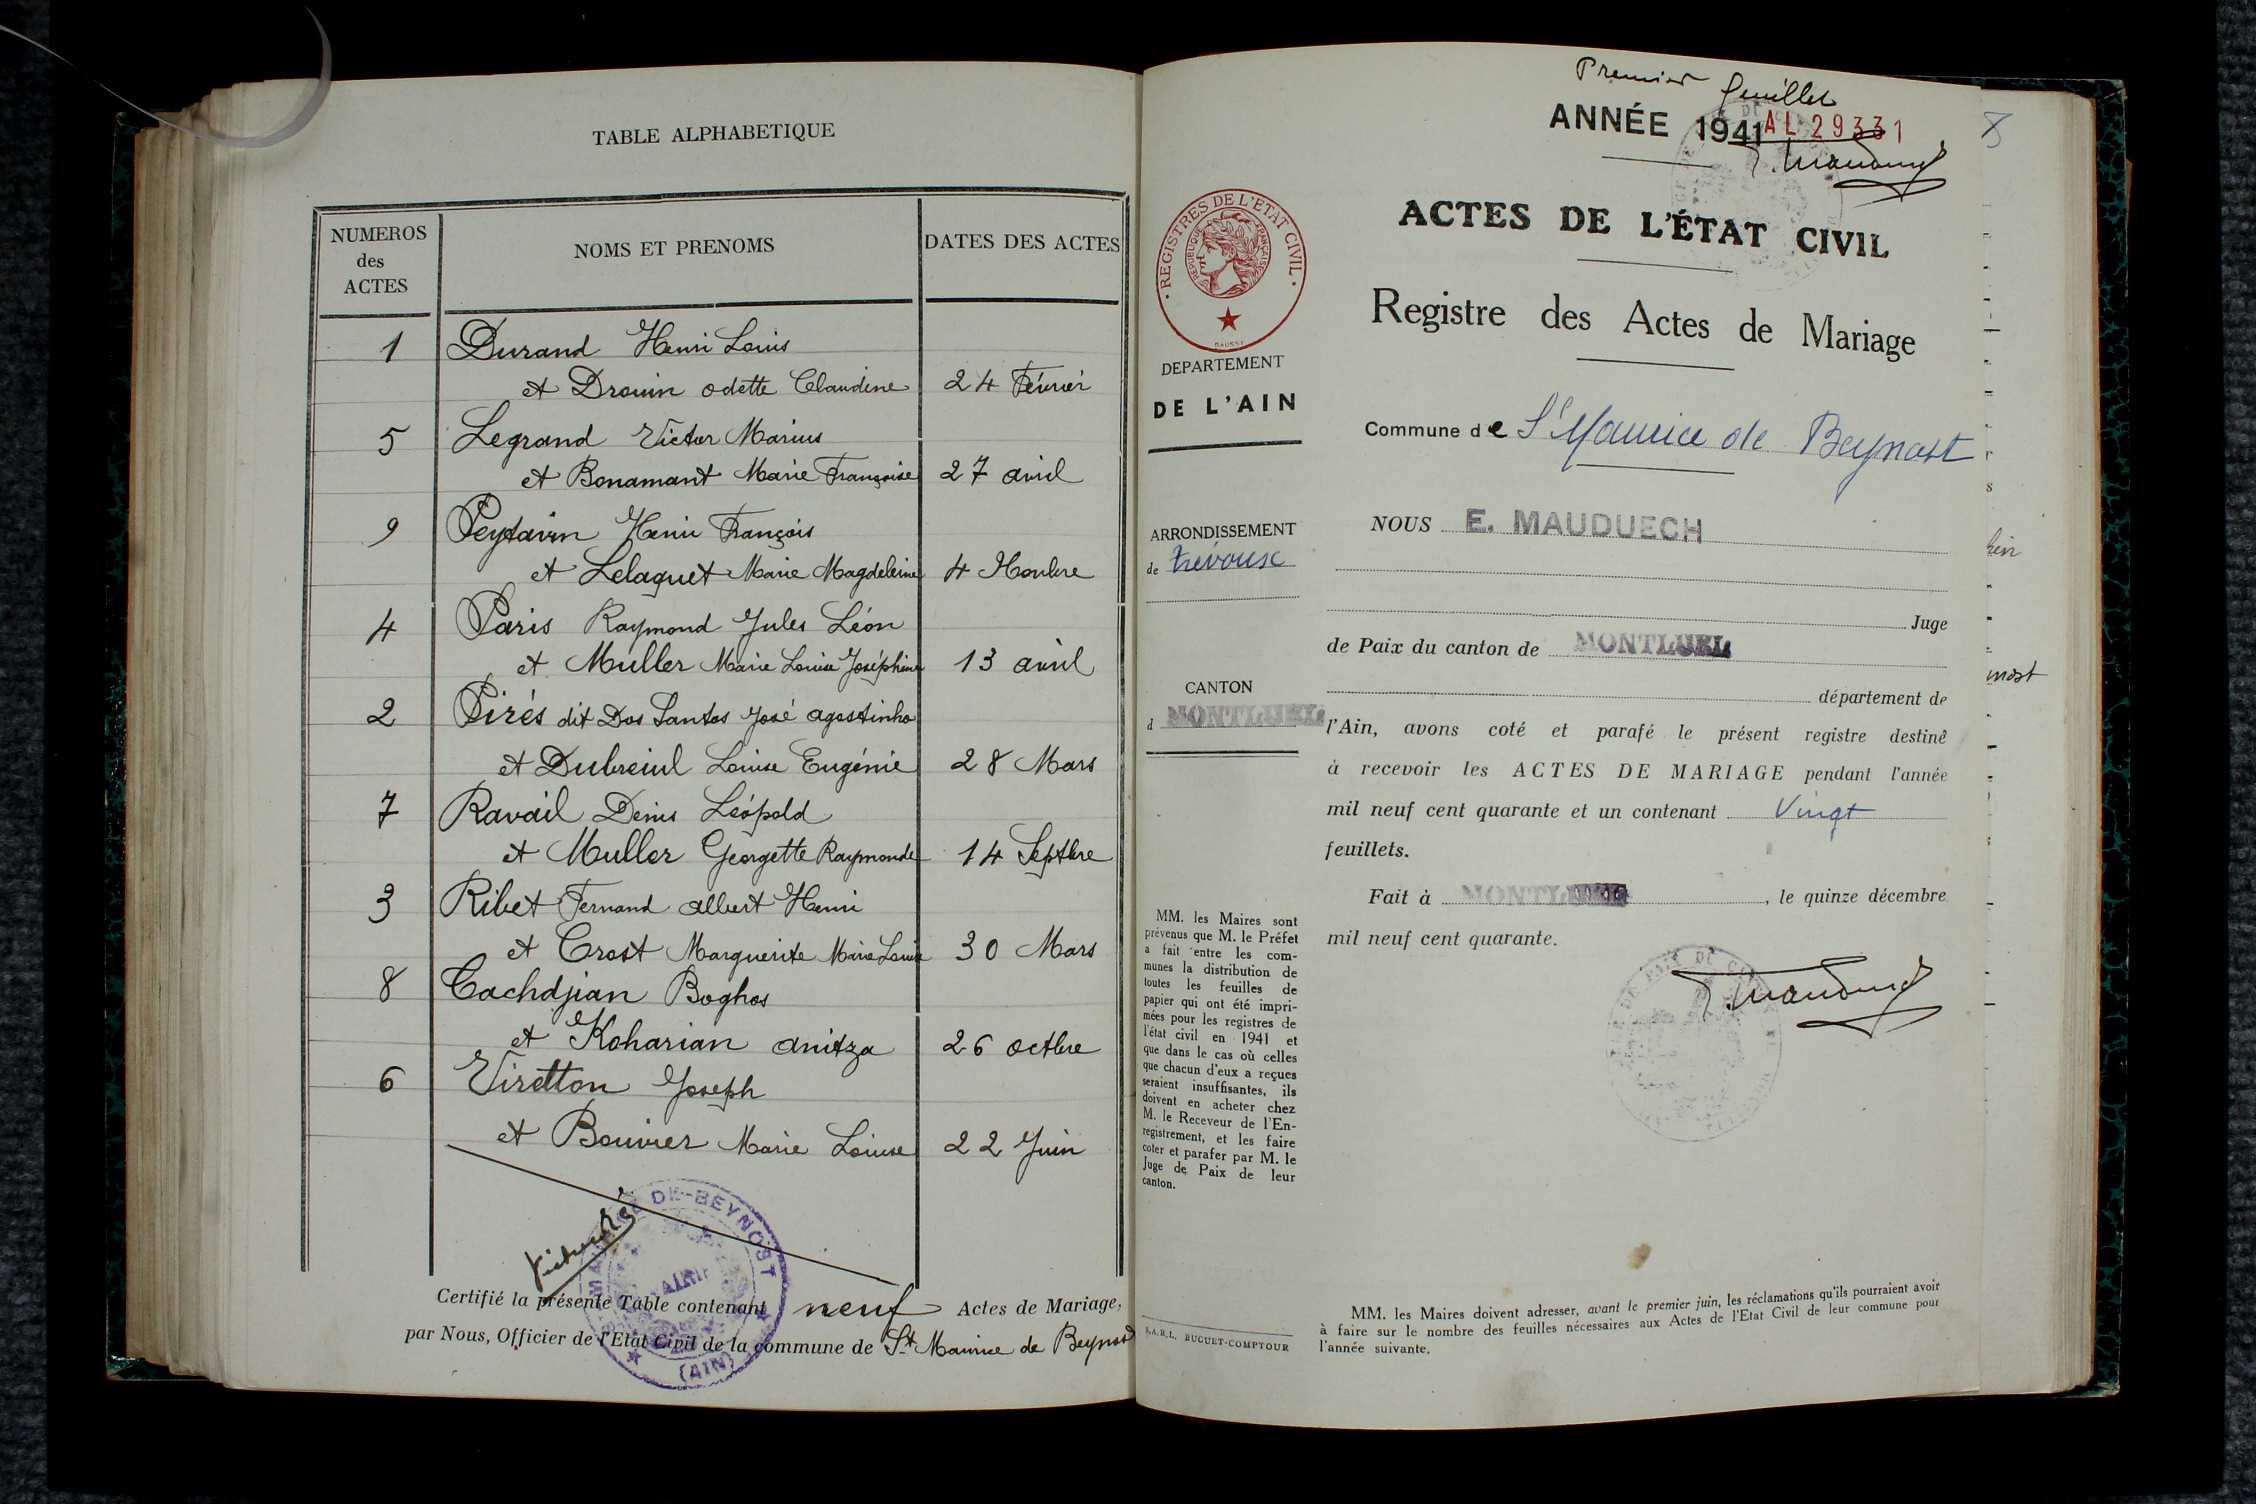 TABLE ALPHABETIQUE
NUMEROS des ACTES
NOMS ET PRENOMS
DATES DES ACTES
1 Durand Henri Louis
et Drouin Odette Claudine 24 Février
5 Legrand Victor Marius
et Bonamant Marie Françoise 27 avril
9 Peytavin Henri François
et Lelaquet Marie Magdeleine 4 Novbre
4 Paris Raymond Jules Léon
et Muller Marie Louise Joséphine 13 avril
2 Pirés dit Dos Santos José agostinho
et Dubreiul Louise Eugénie 28 Mars
7 Ravail Denis Léopold
et Muller Georgette Raymonde 14 Septbre
3 Ribet Fernand albert Henri
et Crost Marguerite Marie Louise 30 Mars
8 Cachdjian Boghos
et Koharian anitza 26 octbre
6 Viretton Joseph
et Bouvier Marie Louise 22 Juin
DE-BEYNOST
(AIN)
Certifié la présente Table contenant neuf Actes de Mariage,
par Nous, Officier de l'Etat Civil de la commune de St Maurice de Beynost
Premier feuillet
ANNÉE 1941
AL 29331
ACTES DE L'ÉTAT CIVIL
Registre des Actes de Mariage
REGISTRES DE L'ETAT CIVIL
REPUBLIQUE FRANÇAISE
DEPARTEMENT
DE L'AIN
Commune de St Maurice de Beynost
ARRONDISSEMENT
de Trévoux
CANTON
d MONTLUEL
NOUS E. MAUDUECH
Juge
de Paix du canton de MONTLUEL
département de
l'Ain, avons coté et parafé le présent registre destiné
à recevoir les ACTES DE MARIAGE pendant l'année
mil neuf cent quarante et un contenant Vingt
feuillets.
Fait à MONTLUEL, le quinze décembre
mil neuf cent quarante.
MM. les Maires sont
prévenus que M. le Préfet
a fait entre les com-
munes la distribution de
toutes les feuilles de
papier qui ont été impri-
mées pour les registres de
l'état civil en 1941 et
que dans le cas où celles
que chacun d'eux a reçues
seraient insuffisantes, ils
doivent en acheter chez
M. le Receveur de l'En-
registrement, et les faire
coter et parafer par M. le
Juge de Paix de leur
canton.
S.A.R.L. BUGUET-COMPTOUR
MM. les Maires doivent adresser, avant le premier juin, les réclamations qu'ils pourraient avoir
à faire sur le nombre des feuilles nécessaires aux Actes de l'Etat Civil de leur commune pour
l'année suivante.